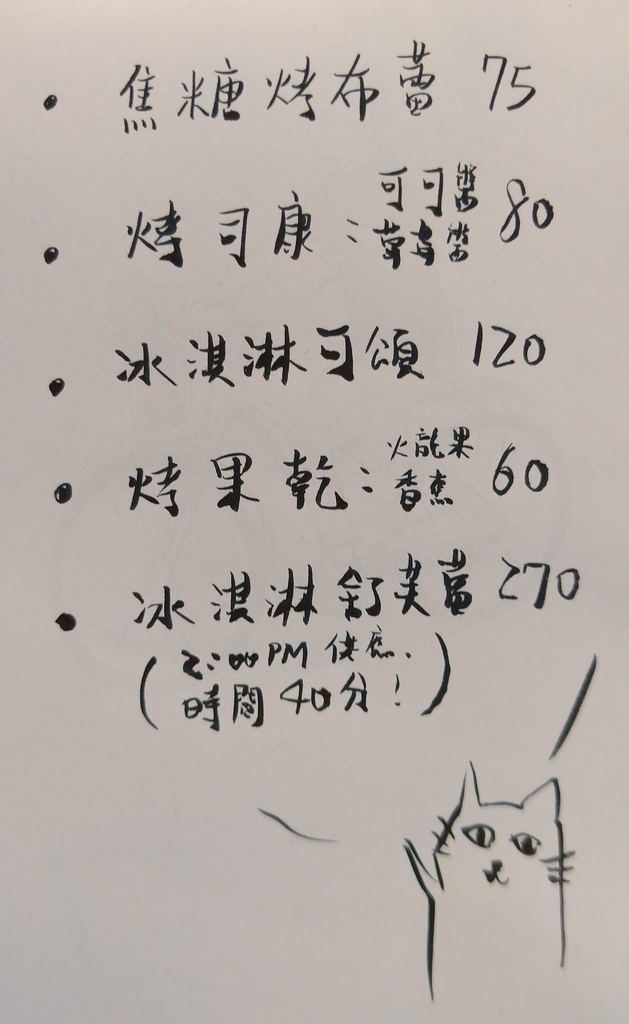 • 焦糖烤布蕾 75
• 烤司康：可可醬 80
草莓醬
• 冰淇淋可頌 120
• 烤果乾：火龍果 60
香蕉
• 冰淇淋舒芙蕾 270
(2:00 PM 供應.
時間40分！)